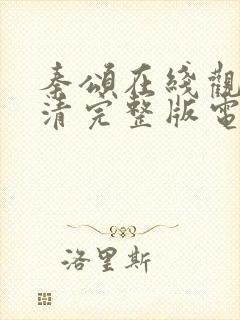 秦頌在綫觀
清完整版電
洛里斯